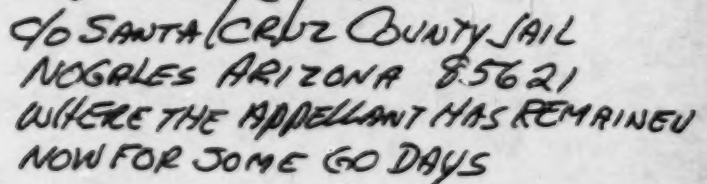 C/O SANTA CRUZ COUNTY JAIL
NOGALES ARIZONA 85621
WHERE THE APPELLANT HAS REMAINED
NOW FOR SOME 60 DAYS